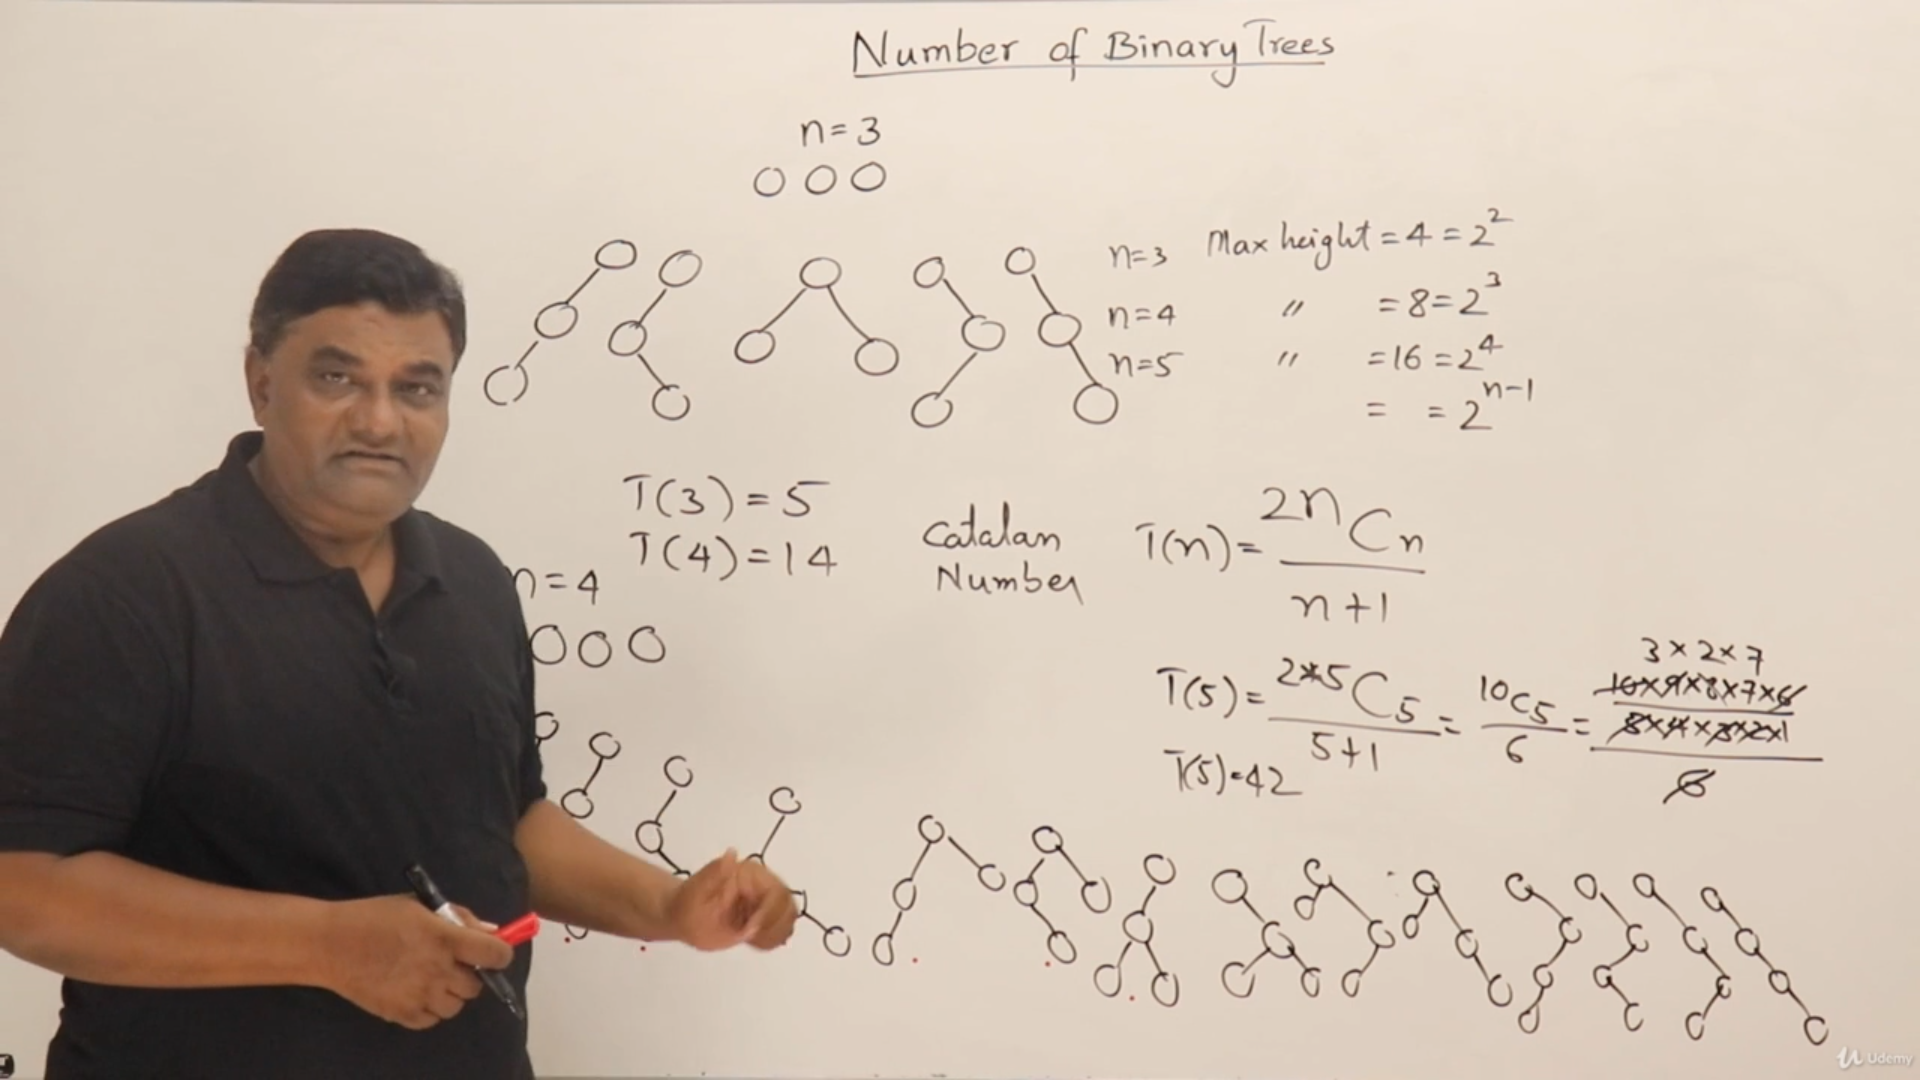 Number of Binary Trees
n=3
n=3 Max height = 4 = 2²
n=4 〃 = 8 = 2³
n=5 〃 = 16 = 2⁴
= = 2ⁿ⁻¹
T(3) = 5
T(4) = 14
Catalan
Number
T(n) = 2nCn
n+1
n=4
3×2×7
T(5) = 2*5C5 = 10C5 = 10×9×8×7×6
5+1 6 5×4×3×2×1
6
T(5)=42
Udemy